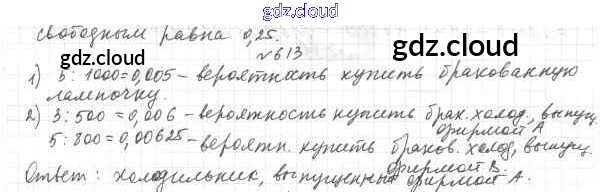 gdz.cloud
свободным равна 0,25.
№613
gdz.cloud gdz.cloud
1) 5:1000=0,005 – вероятность купить бракованную
лампочку.
2) 3:500=0,006 – вероятность купить брак. холод., выпущ.
фирмой А
5:800=0,00625 – вероятн. купить браков. холод, выпущ.
фирмой В.
Ответ: холодильник, выпущенный фирмой А.
gdz.cloud gdz.cloud